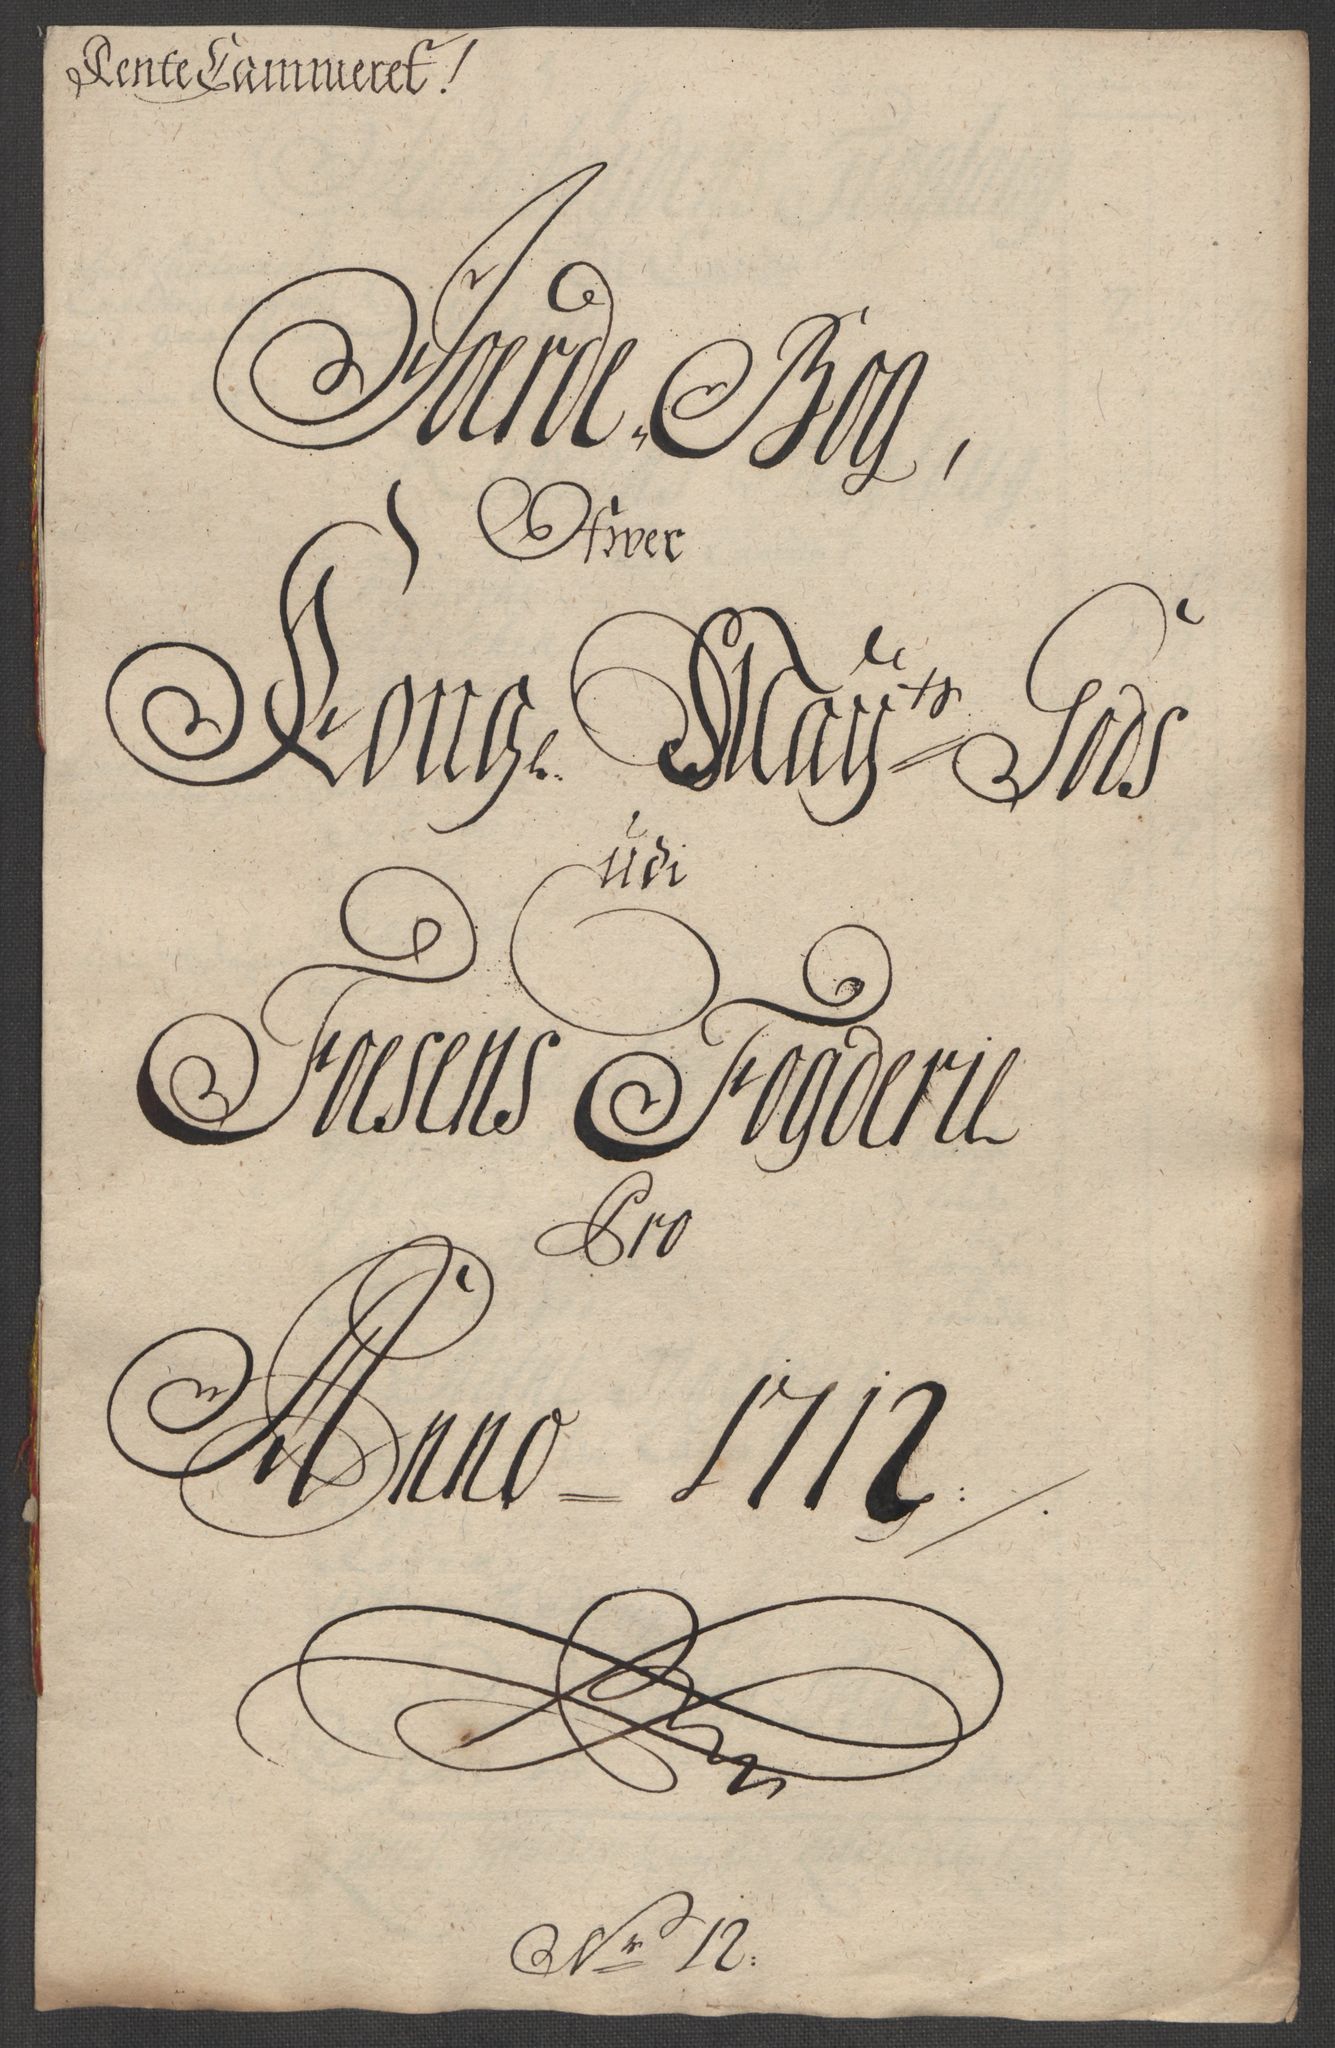 Rente Cammeret!
Jorde-Bog,
Ofwer
Kongl. Mayts Gods
udi
Foesens Fogderie
Pro
Anno = 1712:/.
No 12: